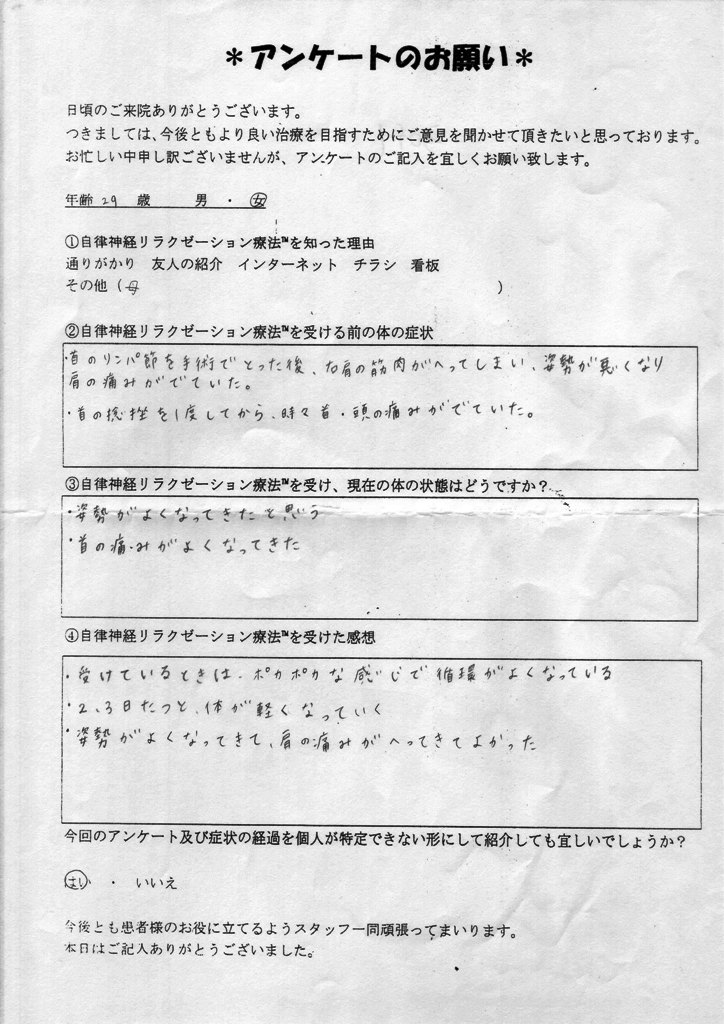 ＊アンケートのお願い＊
日頃のご来院ありがとうございます。
つきましては、今後ともより良い治療を目指すためにご意見を聞かせて頂きたいと思っております。
お忙しい中申し訳ございませんが、アンケートのご記入を宜しくお願い致します。
年齢 29 歳 男 ・ 女
①自律神経リラクゼーション療法™を知った理由
通りがかり 友人の紹介 インターネット チラシ 看板
その他（母 ）
②自律神経リラクゼーション療法™を受ける前の体の症状
・首のリンパ節を手術でとった後、右肩の筋肉がへってしまい、姿勢が悪くなり
肩の痛みがでていた。
・首の捻挫を1度してから、時々首・頭の痛みがでていた。
③自律神経リラクゼーション療法™を受け、現在の体の状態はどうですか？
・姿勢がよくなってきたと思う
・首の痛みがよくなってきた
④自律神経リラクゼーション療法™を受けた感想
・受けているときは、ポカポカな感じで循環がよくなっている
・2、3日たつと、体が軽くなっていく
・姿勢がよくなってきて、肩の痛みがへってきてよかった
今回のアンケート及び症状の経過を個人が特定できない形にして紹介しても宜しいでしょうか？
はい ・ いいえ
今後とも患者様のお役に立てるようスタッフ一同頑張ってまいります。
本日はご記入ありがとうございました。